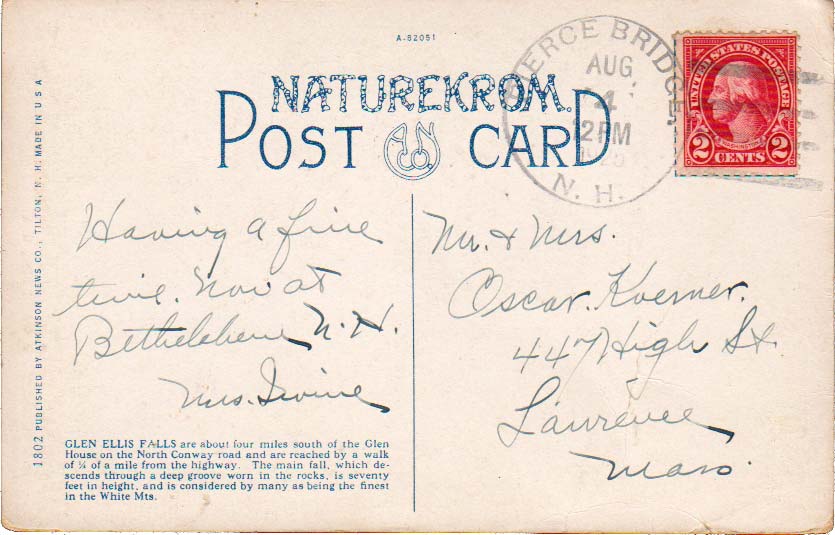 A-82051
NATUREKROM
POST CARD
ANCO.
PIERCE BRIDGE.
AUG
4
12PM
N. H.
UNITED STATES POSTAGE
WASHINGTON
2 CENTS 2
1802 PUBLISHED BY ATKINSON NEWS CO., TILTON, N. H. MADE IN U S A
Having a fine
time. Now at
Bethelehem N. H.
Mrs. Irvine
GLEN ELLIS FALLS are about four miles south of the Glen
House on the North Conway road and are reached by a walk
of ¼ of a mile from the highway. The main fall, which de-
scends through a deep groove worn in the rocks, is seventy
feet in height, and is considered by many as being the finest
in the White Mts.
Mr. & Mrs.
Oscar. Koerner.
447 High St.
Lawrence
Mass.